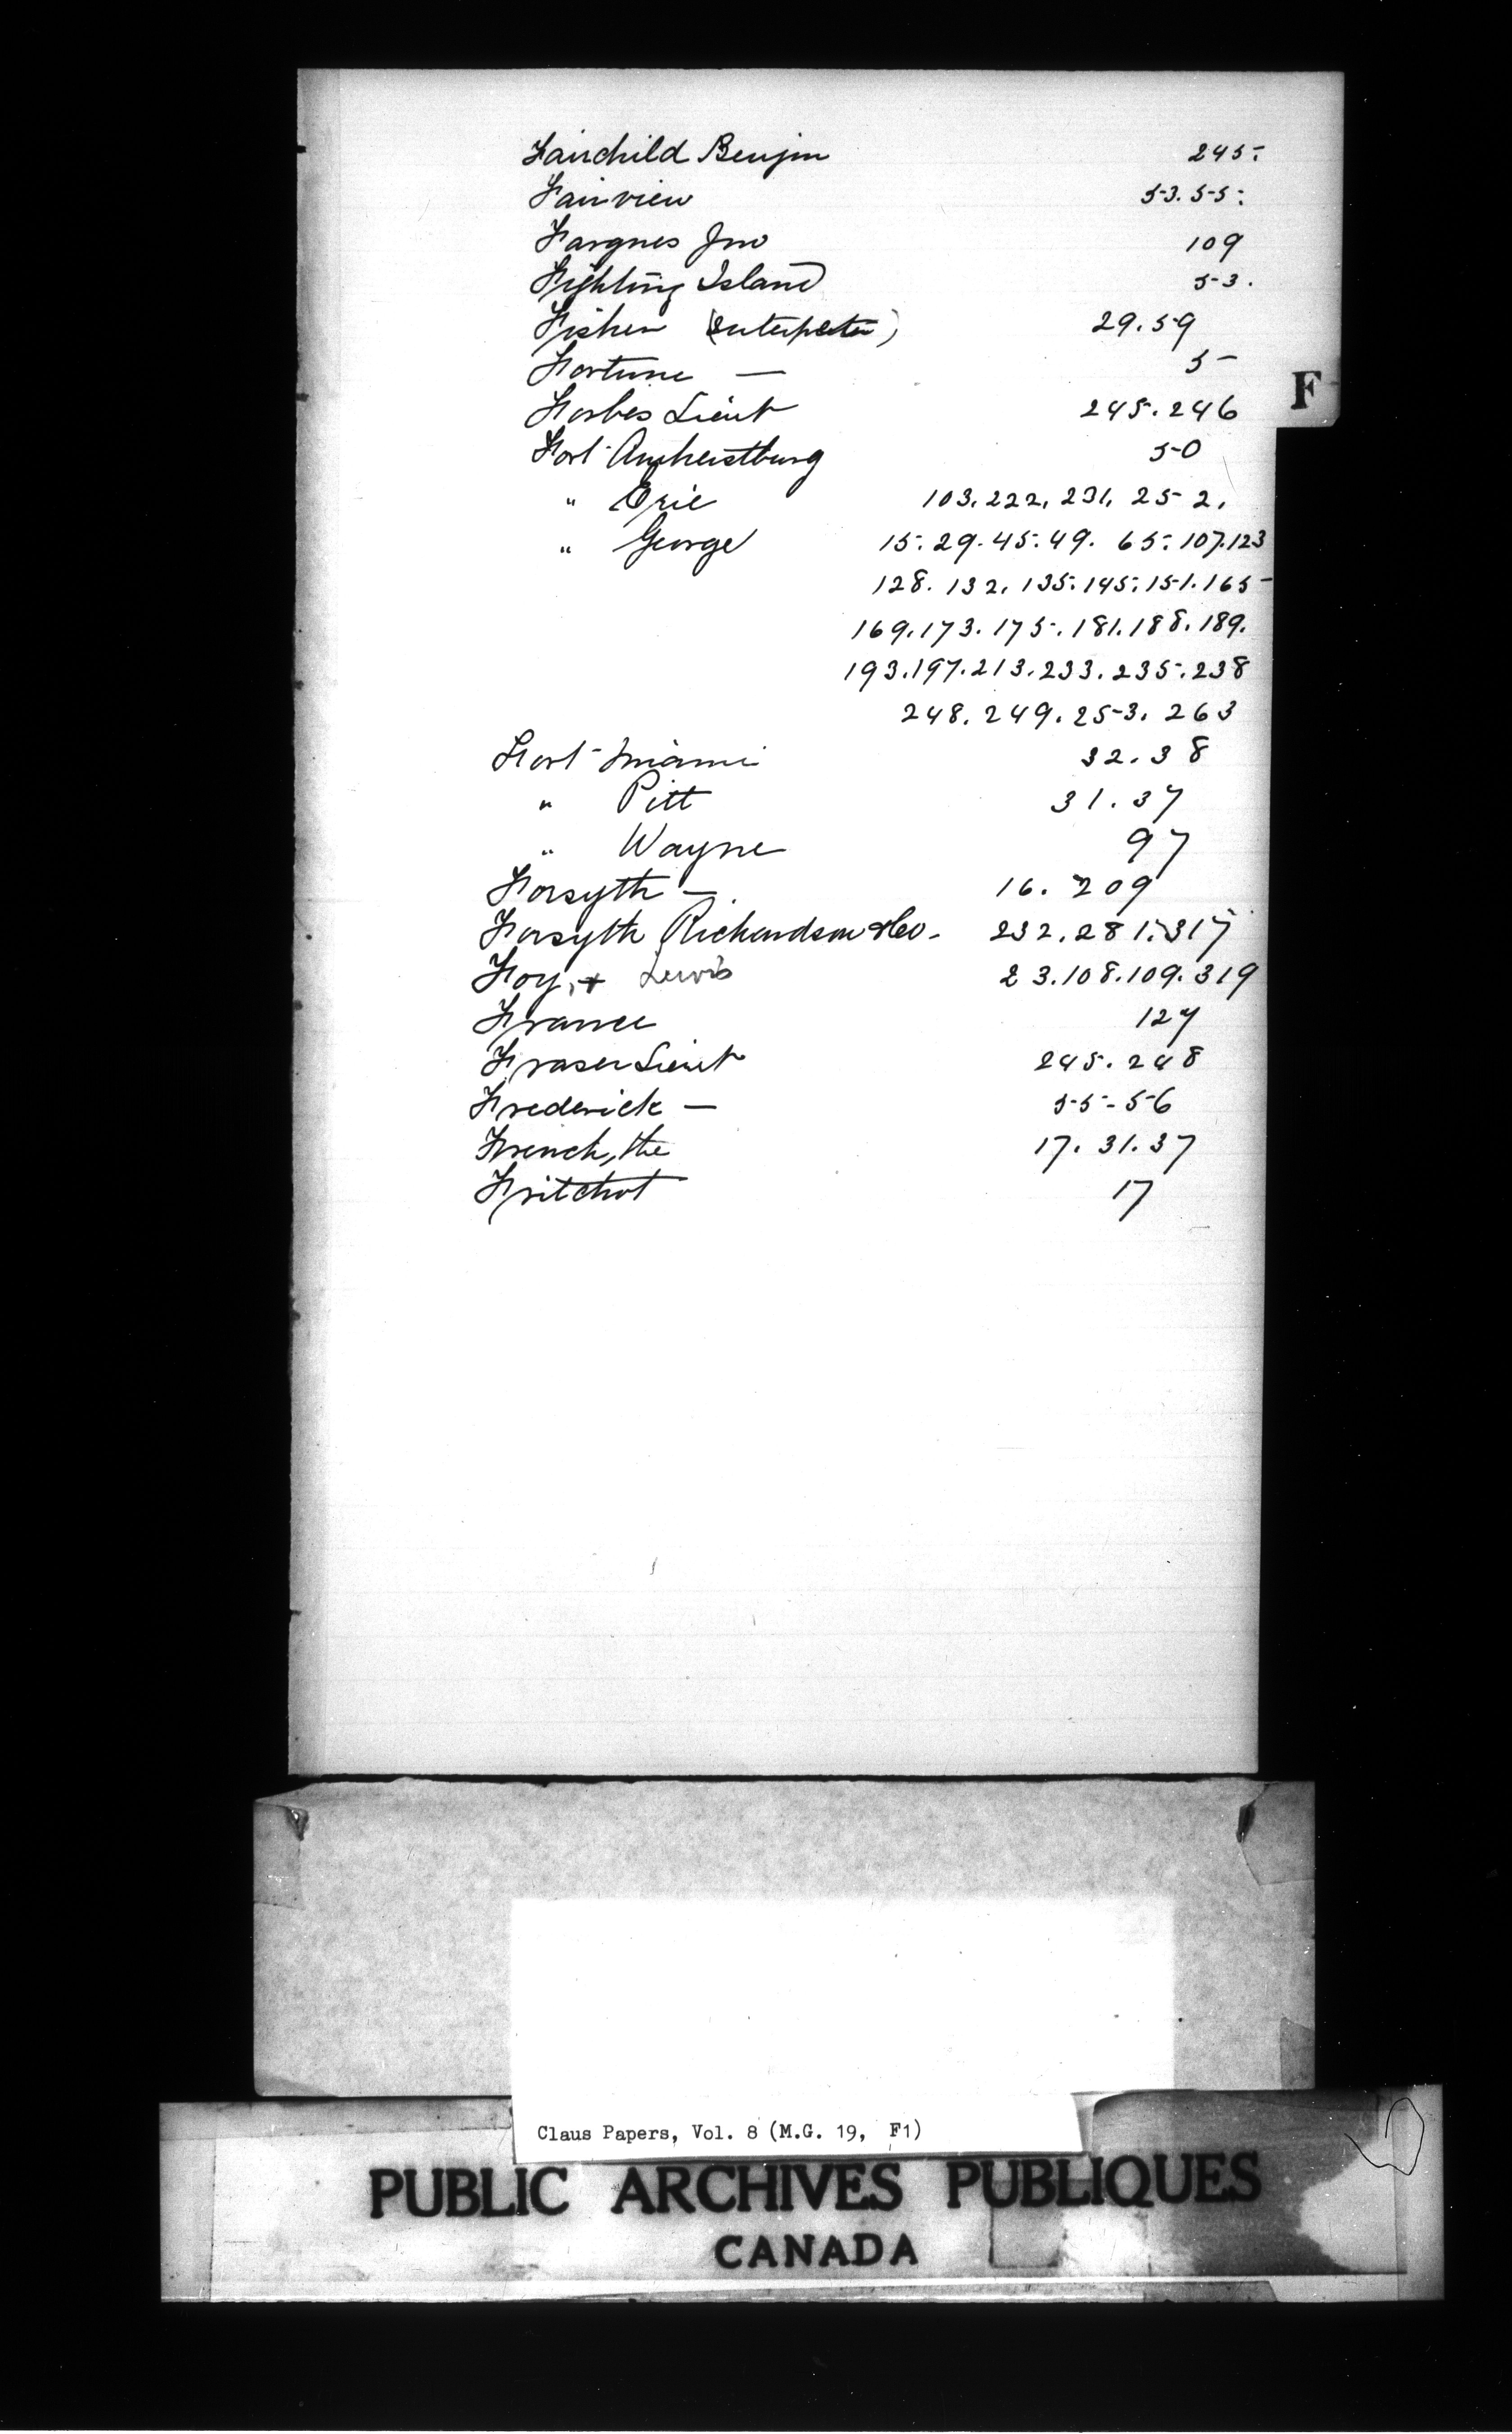 Fairchild Benjm 245.
Fairview 53. 55.
Fargues Jno 109
Fighting Island 53.
Fisher (Interpreter) 29. 59
Fortune — 5
Forbes Lieut 245. 246
F
Fort Amherstburg 50
" Erie 103. 222. 231. 252.
" George 15. 29. 45. 49. 65. 107. 123
128. 132. 135. 145. 151. 165
169. 173. 175. 181. 188. 189.
193. 197. 213. 233. 235. 238
248. 249. 253. 263
Fort Miami 32. 38
" Pitt 31. 37
" Wayne 97
Forsyth — 16. 209
Forsyth Richardson & Co. 232. 281. 317
Foy, + Lewis 23. 108. 109. 319
France 127
Fraser Lieut 245. 248
Frederick — 55 - 56
French, the 17. 31. 37
Fritchot 17
Claus Papers, Vol. 8 (M.G. 19, F1)
PUBLIC ARCHIVES PUBLIQUES
CANADA